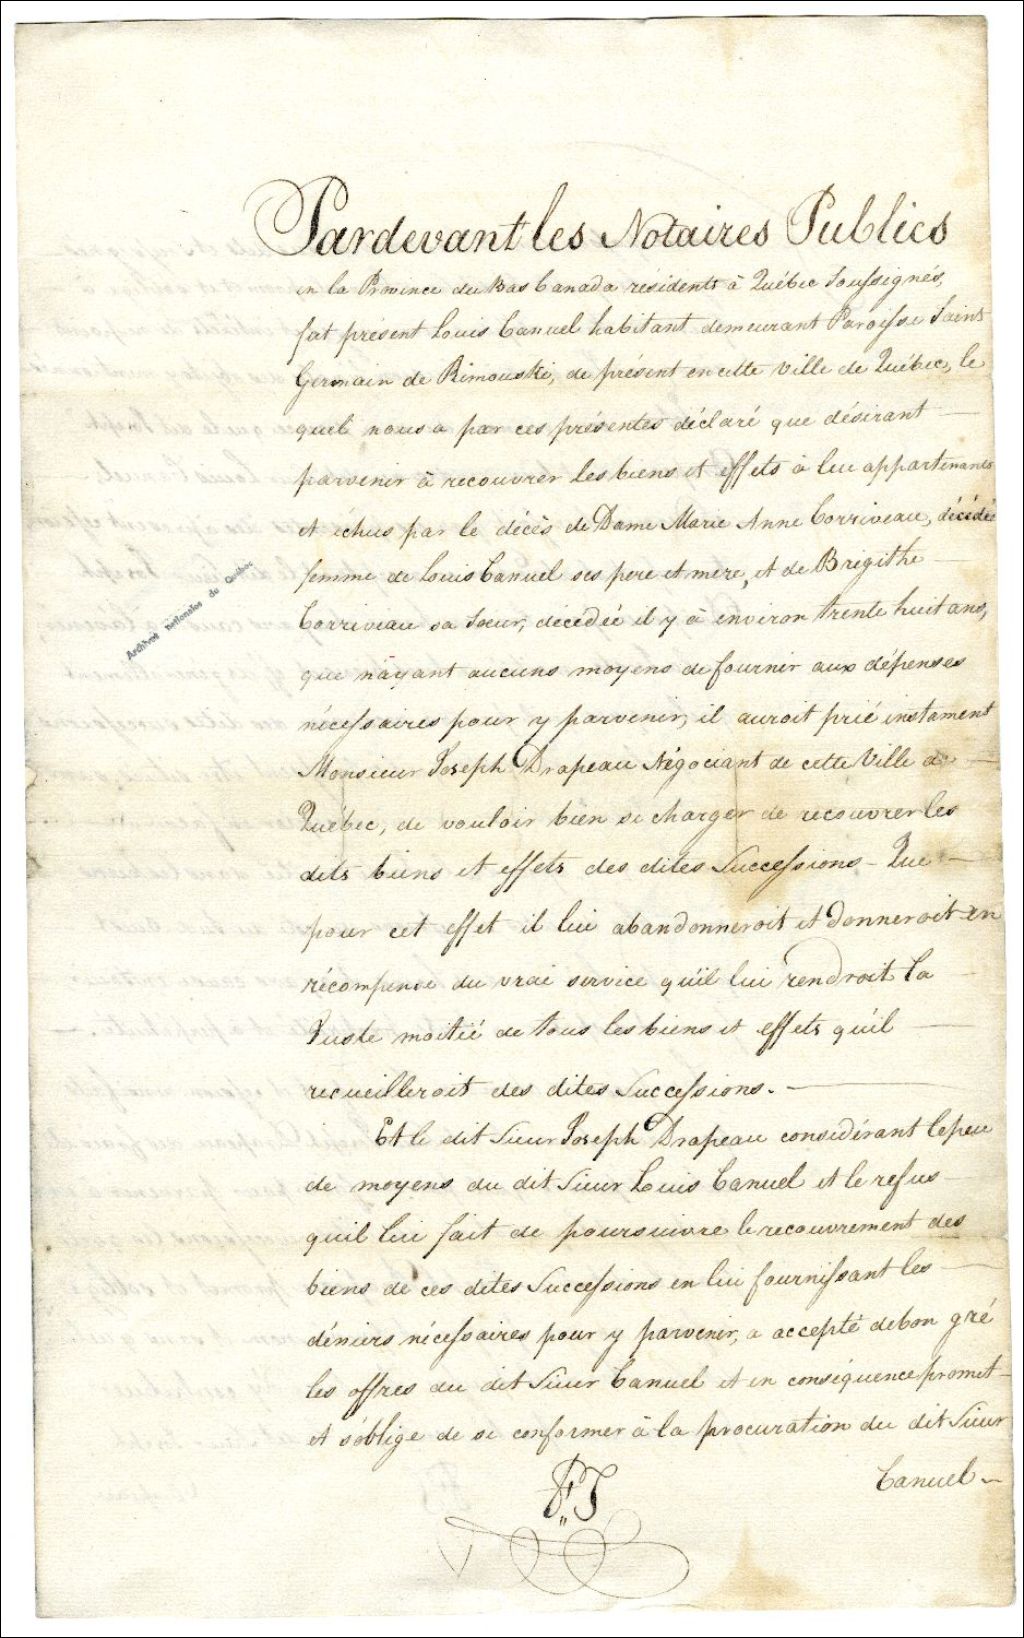 Pardevant les Notaires Publics
en la Province du Bas Canada résidents à Québec Soussignés,
fut présent Louis Canuel habitant demeurant Paroisse Saint
Germain de Rimouski, de présent en cette Ville de Québec, le
quel nous a par ces présentes déclaré que désirant
parvenir à recouvrer les biens et effets à lui appartenants
et échus par le décès de Dame Marie Anne Corriveau, décédée
femme de Louis Canuel ses pere et mere, et de Brigithe
Corriveau sa Soeur, décédée il y à environ trente huit ans,
que n'ayant aucuns moyens de fournir aux dépenses
nécessaires pour y parvenir, il auroit prié instament
Monsieur Joseph Drapeau Négociant de cette Ville de
Québec, de vouloir bien se charger de recouvrer les
dits biens et effets des dites Successions - Que
pour cet effet il lui abandonneroit et donneroit en
récompense du vrai service qu'il lui rendroit la
Juste moitié de tous les biens et effets qu'il
recueilleroit des dites Successions. -
Et le dit Sieur Joseph Drapeau considérant le peu
de moyens du dit Sieur Louis Canuel et le refus
qu'il lui fait de poursuivre le recouvrement des
biens de ces dites Successions en lui fournissant les
déniers nécessaires pour y parvenir, a accepté de bon gré
les offres du dit Sieur Canuel et en conséquence promet
et s'oblige de se conformer à la procuration du dit Sieur
Canuel -
Archives nationales du Québec